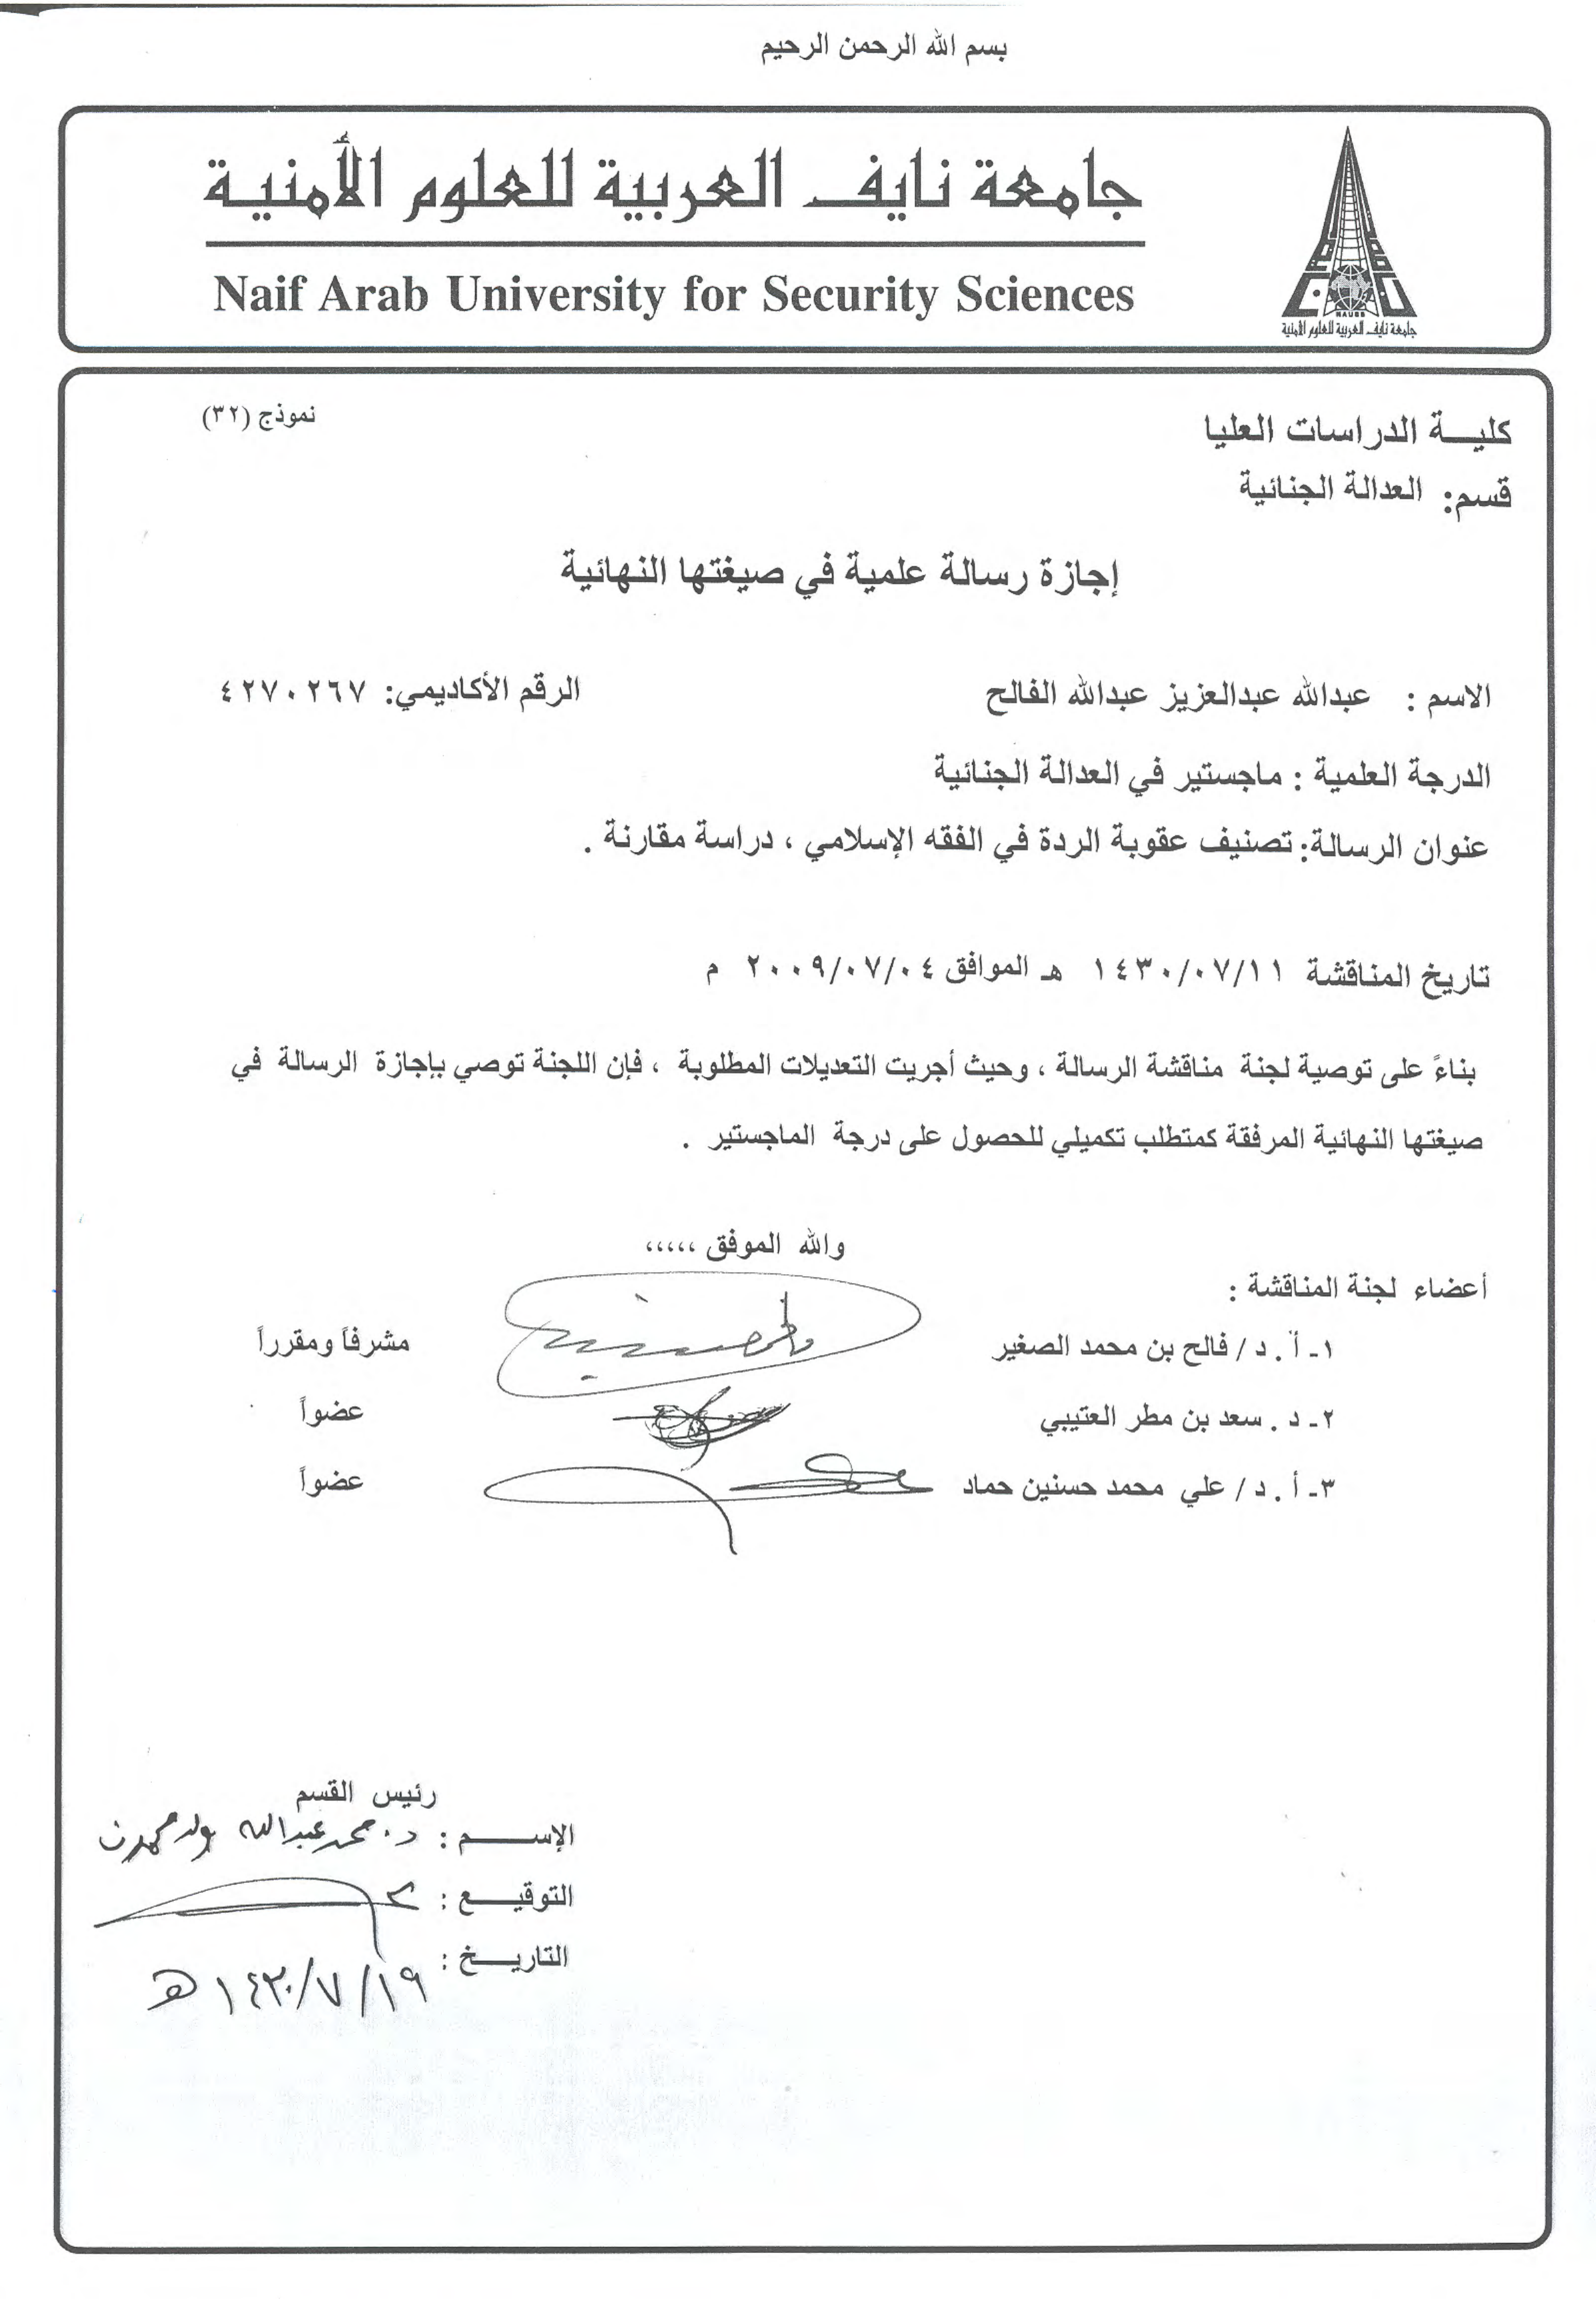 بسم الله الرحمن الرحيم
جامعة نايف العربية للعلوم الأمنية
Naif Arab University for Security Sciences
NAUSS
جامعة نايف العربية للعلوم الأمنية
نموذج (٣٢)
كليـــة الدراسات العليا
قسم: العدالة الجنائية
إجازة رسالة علمية في صيغتها النهائية
الاسم : عبدالله عبدالعزيز عبدالله الفالح الرقم الأكاديمي: ٤٢٧٠٢٦٧
الدرجة العلمية : ماجستير في العدالة الجنائية
عنوان الرسالة: تصنيف عقوبة الردة في الفقه الإسلامي ، دراسة مقارنة .
تاريخ المناقشة ١٤٣٠/٠٧/١١ هـ الموافق ٢٠٠٩/٠٧/٠٤ م
بناءً على توصية لجنة مناقشة الرسالة ، وحيث أجريت التعديلات المطلوبة ، فإن اللجنة توصي بإجازة الرسالة في
صيغتها النهائية المرفقة كمتطلب تكميلي للحصول على درجة الماجستير .
والله الموفق ،،،،،
أعضاء لجنة المناقشة :
١- أ . د / فالح بن محمد الصغير مشرفاً ومقرراً
٢- د . سعد بن مطر العتيبي عضواً
٣- أ . د / علي محمد حسنين حماد عضواً
رئيس القسم
الإســـــم : د. محمد عبدالله ولد محمدن
التوقيـــع :
التاريـــخ : ١٤٣٠/٧/١٩ هـ